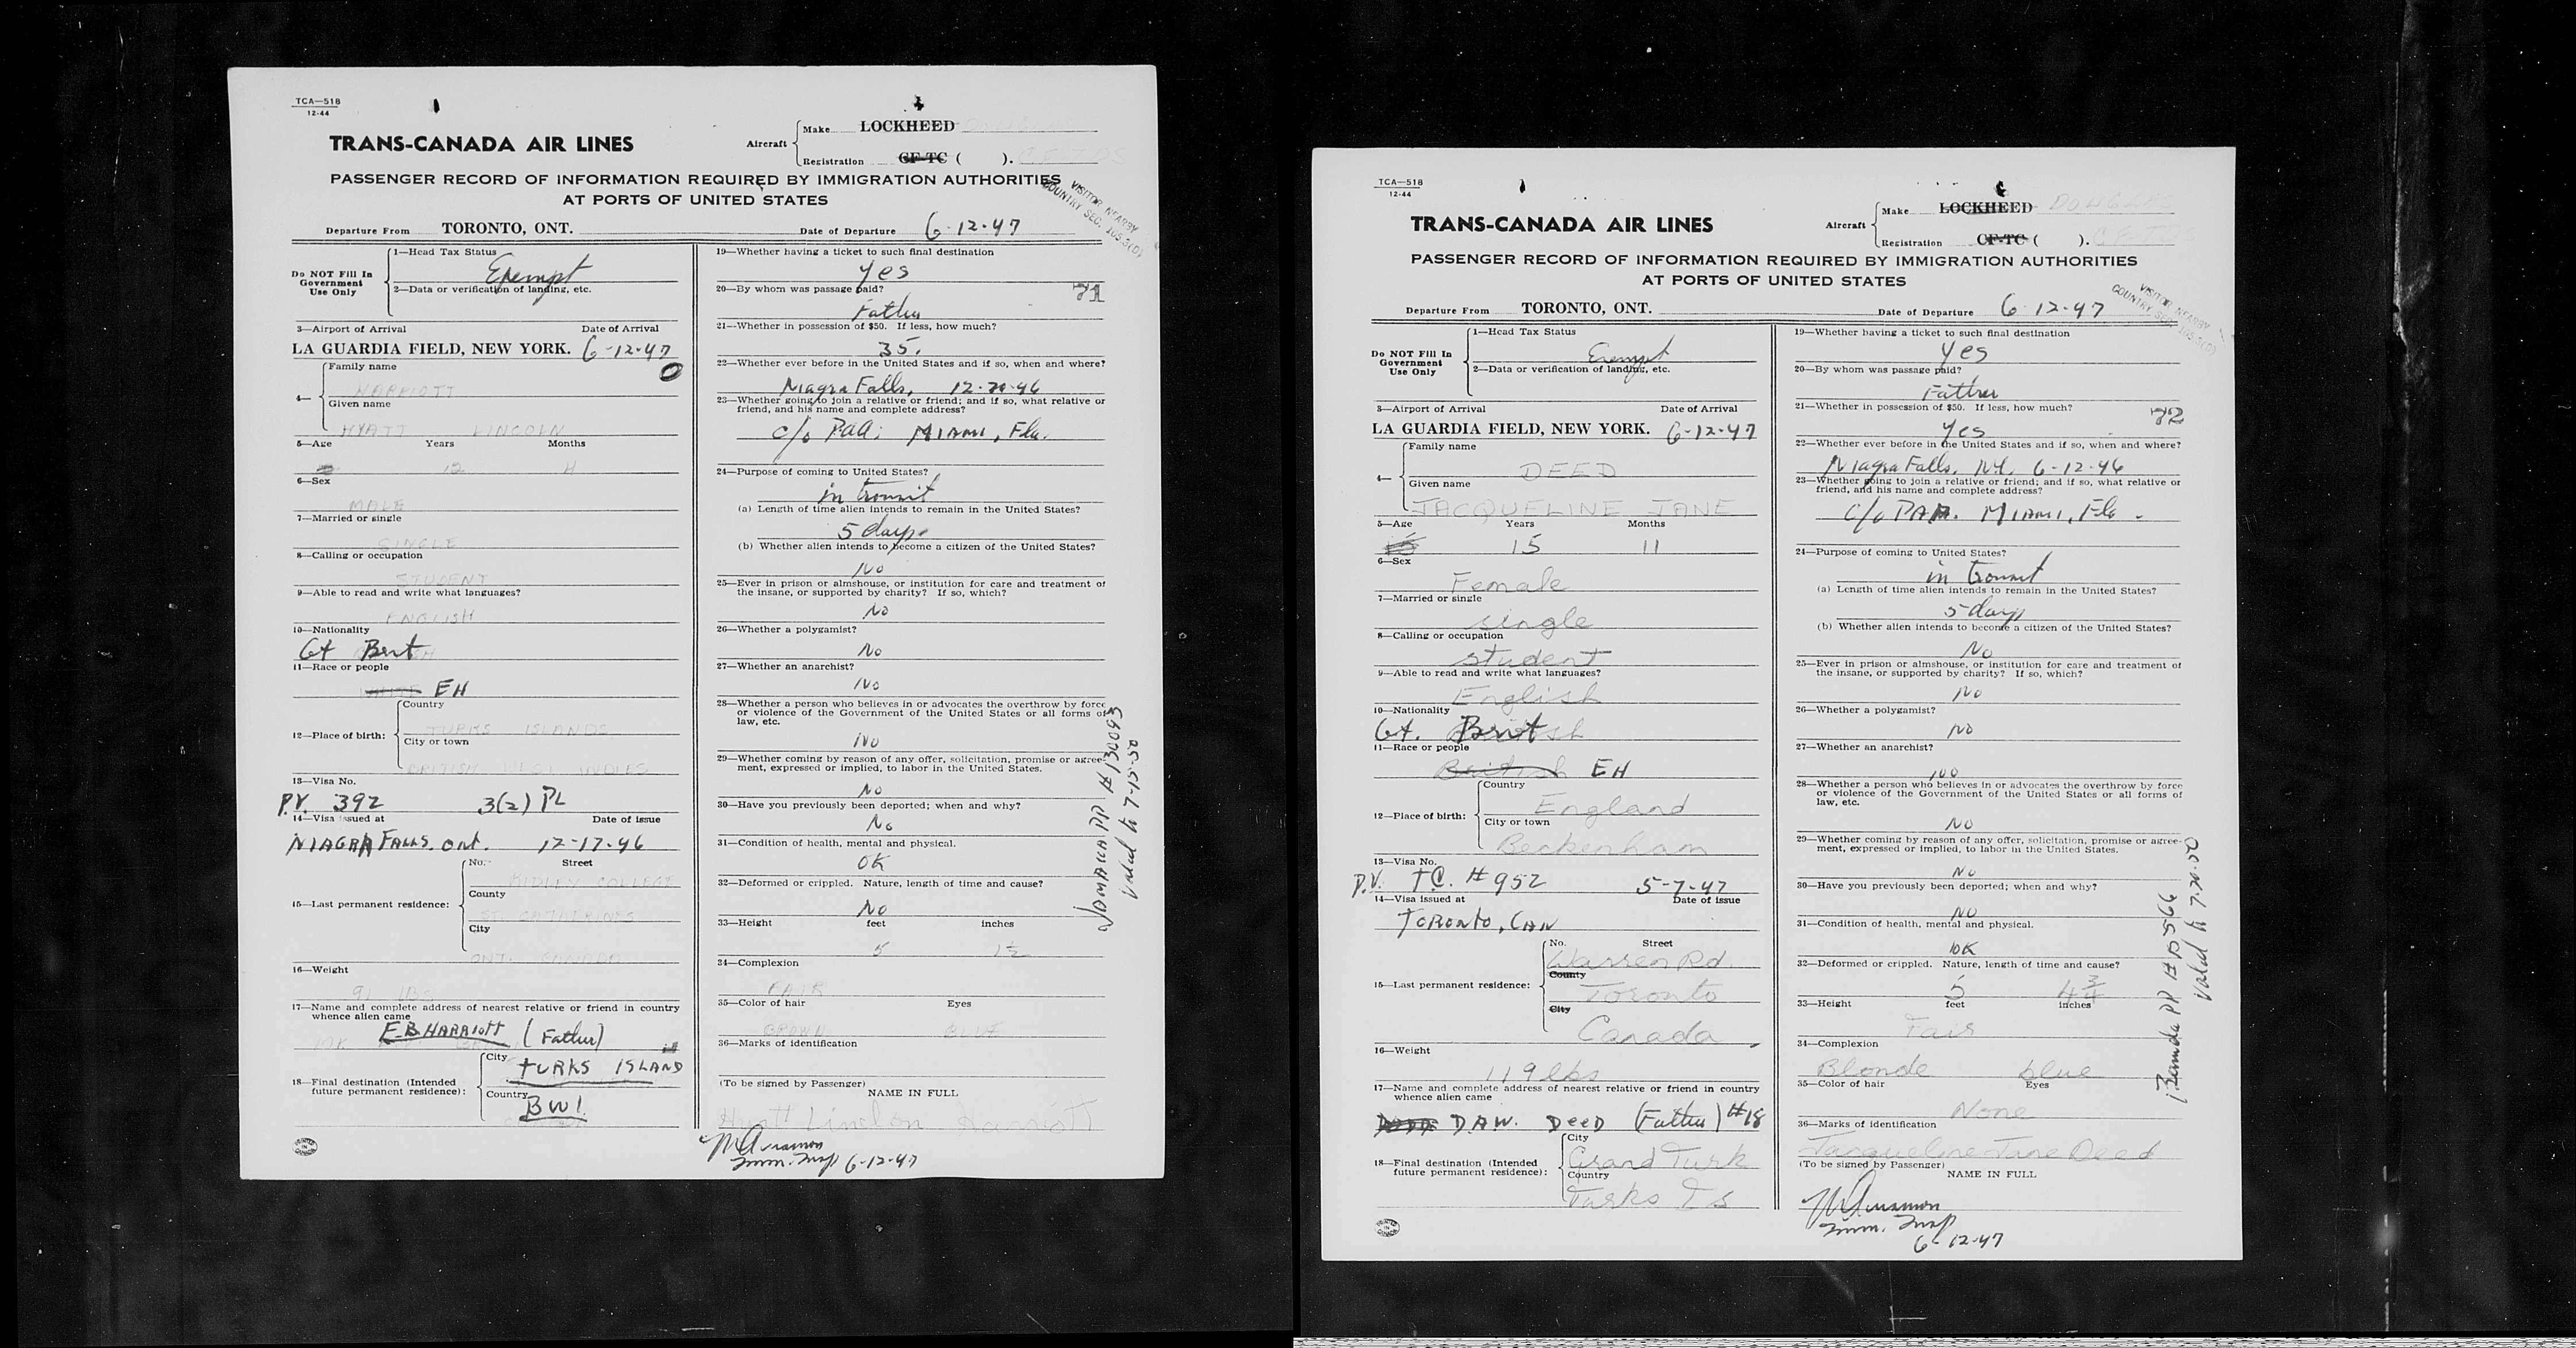 TCA—518
12-44
TRANS-CANADA AIR LINES
Aircraft
Make LOCKHEED
Registration CF-TC ( ).
PASSENGER RECORD OF INFORMATION REQUIRED BY IMMIGRATION AUTHORITIES
AT PORTS OF UNITED STATES
VISITOR NEARBY
COUNTRY SEC. 165.3(D)
Departure From TORONTO, ONT. Date of Departure 6-12-47
Do NOT Fill In
Government
Use Only
1—Head Tax Status
Exempt
2—Data or verification of landing, etc.
3—Airport of Arrival Date of Arrival
LA GUARDIA FIELD, NEW YORK. 6-12-47
4—
Family name
HARRIOTT
Given name
HYATT LINCOLN
5—Age Years Months
12
6—Sex
MALE
7—Married or single
SINGLE
8—Calling or occupation
STUDENT
9—Able to read and write what languages?
ENGLISH
10—Nationality
Gt Brit
11—Race or people
EH
12—Place of birth:
Country
TURKS ISLANDS
City or town
BRITISH WEST INDIES
13—Visa No.
P.V. 392 3(2) PL
14—Visa issued at Date of issue
NIAGRA FALLS. Ont. 12-17-46
15—Last permanent residence:
No. Street
RIDLEY COLLEGE
County
ST. CATHERINES
City
ONT. CANADA
16—Weight
91 LBS
17—Name and complete address of nearest relative or friend in country
whence alien came
E.B HARRIOTT (Father)
18—Final destination (Intended
future permanent residence):
City
TURKS ISLAND
Country
BWI.
19—Whether having a ticket to such final destination
yes
20—By whom was passage paid?
71
Father
21—Whether in possession of $50. If less, how much?
35.
22—Whether ever before in the United States and if so, when and where?
Niagra Falls, 12-20-46
23—Whether going to join a relative or friend; and if so, what relative or
friend, and his name and complete address?
c/o PAA: MIAMI, Fla.
24—Purpose of coming to United States?
in transit
(a) Length of time alien intends to remain in the United States?
5 days
(b) Whether alien intends to become a citizen of the United States?
No
25—Ever in prison or almshouse, or institution for care and treatment of
the insane, or supported by charity? If so, which?
No
26—Whether a polygamist?
No
27—Whether an anarchist?
No
28—Whether a person who believes in or advocates the overthrow by force
or violence of the Government of the United States or all forms of
law, etc.
No
29—Whether coming by reason of any offer, solicitation, promise or agree-
ment, expressed or implied, to labor in the United States.
No
30—Have you previously been deported; when and why?
No
31—Condition of health, mental and physical.
OK
32—Deformed or crippled. Nature, length of time and cause?
No
33—Height feet inches
5 1½
34—Complexion
FAIR
35—Color of hair Eyes
BROWN BLUE
36—Marks of identification
(To be signed by Passenger)
NAME IN FULL
Hyatt Lincoln Harriott
Imm. Insp 6-12-47
JAMAICA PP # 130093
Valid to 7-15-50
TCA—518
12-44
TRANS-CANADA AIR LINES
Aircraft
Make LOCKHEED DOUGLAS
Registration CF-TC ( ).
PASSENGER RECORD OF INFORMATION REQUIRED BY IMMIGRATION AUTHORITIES
AT PORTS OF UNITED STATES
VISITOR NEARBY
COUNTRY SEC. 165.3(D)
Departure From TORONTO, ONT. Date of Departure 6-12-47
Do NOT Fill In
Government
Use Only
1—Head Tax Status
Exempt
2—Data or verification of landing, etc.
3—Airport of Arrival Date of Arrival
LA GUARDIA FIELD, NEW YORK. 6-12-47
4—
Family name
DEED
Given name
JACQUELINE JANE
5—Age Years Months
15 11
6—Sex
Female
7—Married or single
single
8—Calling or occupation
student
9—Able to read and write what languages?
English
10—Nationality
Gt. Brit
11—Race or people
British EH
12—Place of birth:
Country
England
City or town
Beckenham
13—Visa No.
P.V. T.C. #952 5-7-47
14—Visa issued at Date of issue
TORONTO, CAN
15—Last permanent residence:
No. Street
Warren Rd.
County
Toronto
City
Canada
16—Weight
119 lbs
17—Name and complete address of nearest relative or friend in country
whence alien came
D.A.W. DEED (Father) #18
18—Final destination (Intended
future permanent residence):
City
Grand Turk
Country
Turks Is
19—Whether having a ticket to such final destination
yes
20—By whom was passage paid?
Father
21—Whether in possession of $50. If less, how much?
72
yes
22—Whether ever before in the United States and if so, when and where?
Niagra Falls, N.Y. 6-12-46
23—Whether going to join a relative or friend; and if so, what relative or
friend, and his name and complete address?
c/o PAA. MIAMI, Fla.
24—Purpose of coming to United States?
in transit
(a) Length of time alien intends to remain in the United States?
5 days
(b) Whether alien intends to become a citizen of the United States?
No
25—Ever in prison or almshouse, or institution for care and treatment of
the insane, or supported by charity? If so, which?
No
26—Whether a polygamist?
No
27—Whether an anarchist?
No
28—Whether a person who believes in or advocates the overthrow by force
or violence of the Government of the United States or all forms of
law, etc.
No
29—Whether coming by reason of any offer, solicitation, promise or agree-
ment, expressed or implied, to labor in the United States.
No
30—Have you previously been deported; when and why?
No
31—Condition of health, mental and physical.
OK
32—Deformed or crippled. Nature, length of time and cause?
5 4¾
33—Height feet inches
Fair
34—Complexion
Blonde blue
35—Color of hair Eyes
None
36—Marks of identification
Jacqueline Jane Deed
(To be signed by Passenger)
NAME IN FULL
Imm. Insp
6-12-47
Bermuda PP
Valid to 7-20-50